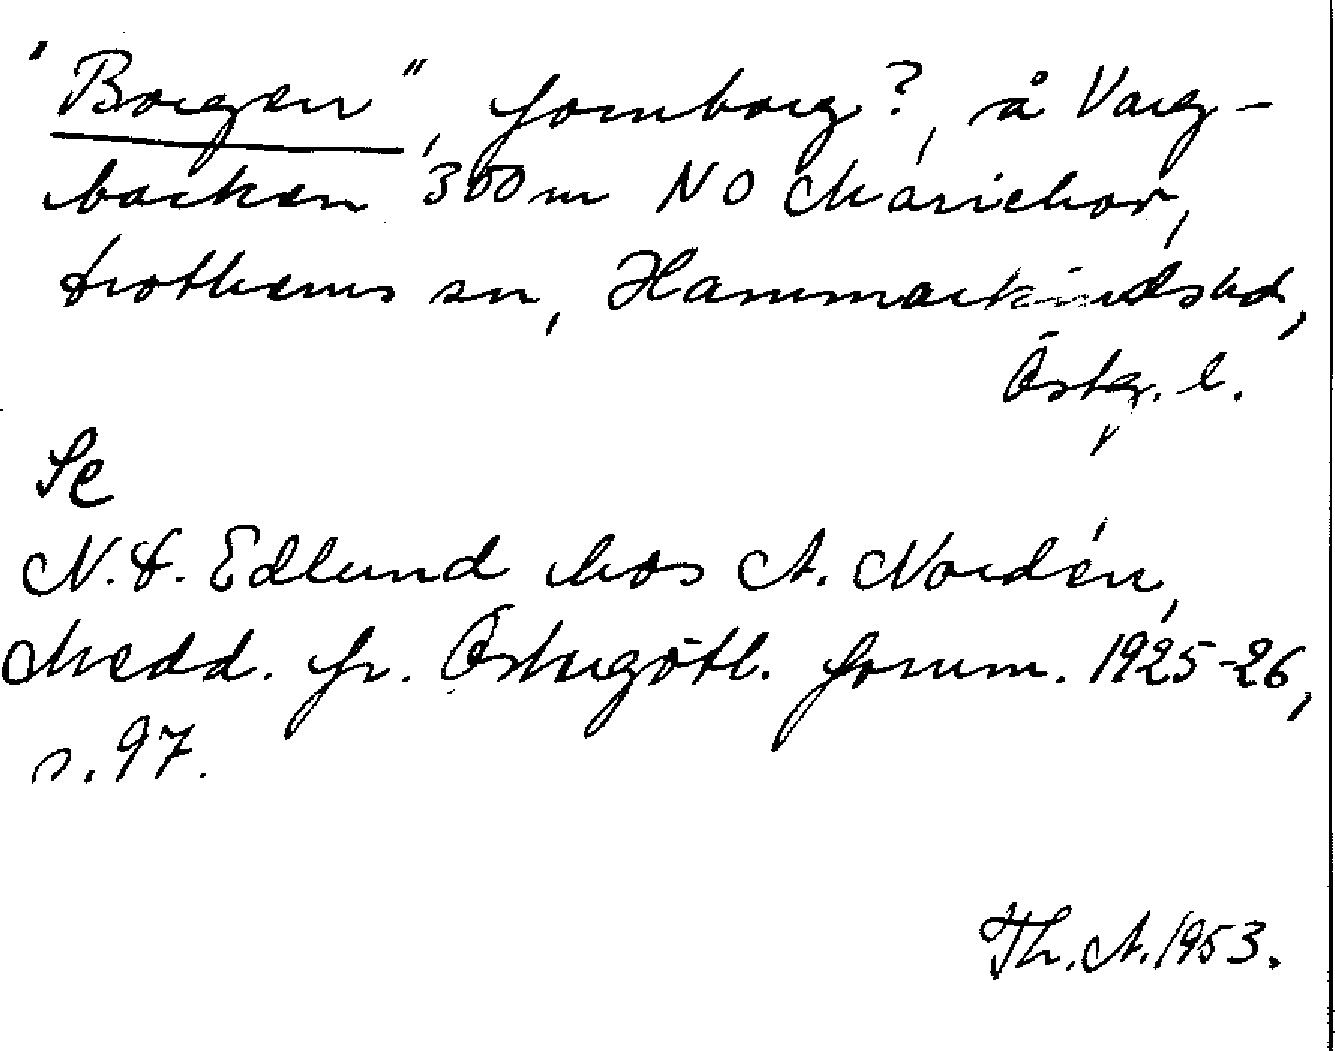 "Borgen", fornborg?, å Varg-
backen 300 m NO Mariehov,
Drothems sn, Hammarkindshd,
Östg. l.
Se
N. D. Edlund hos A. Nordén,
Medd. fr. Östergötl. fornm. 1925-26,
s. 97.
Th. A. 1953.